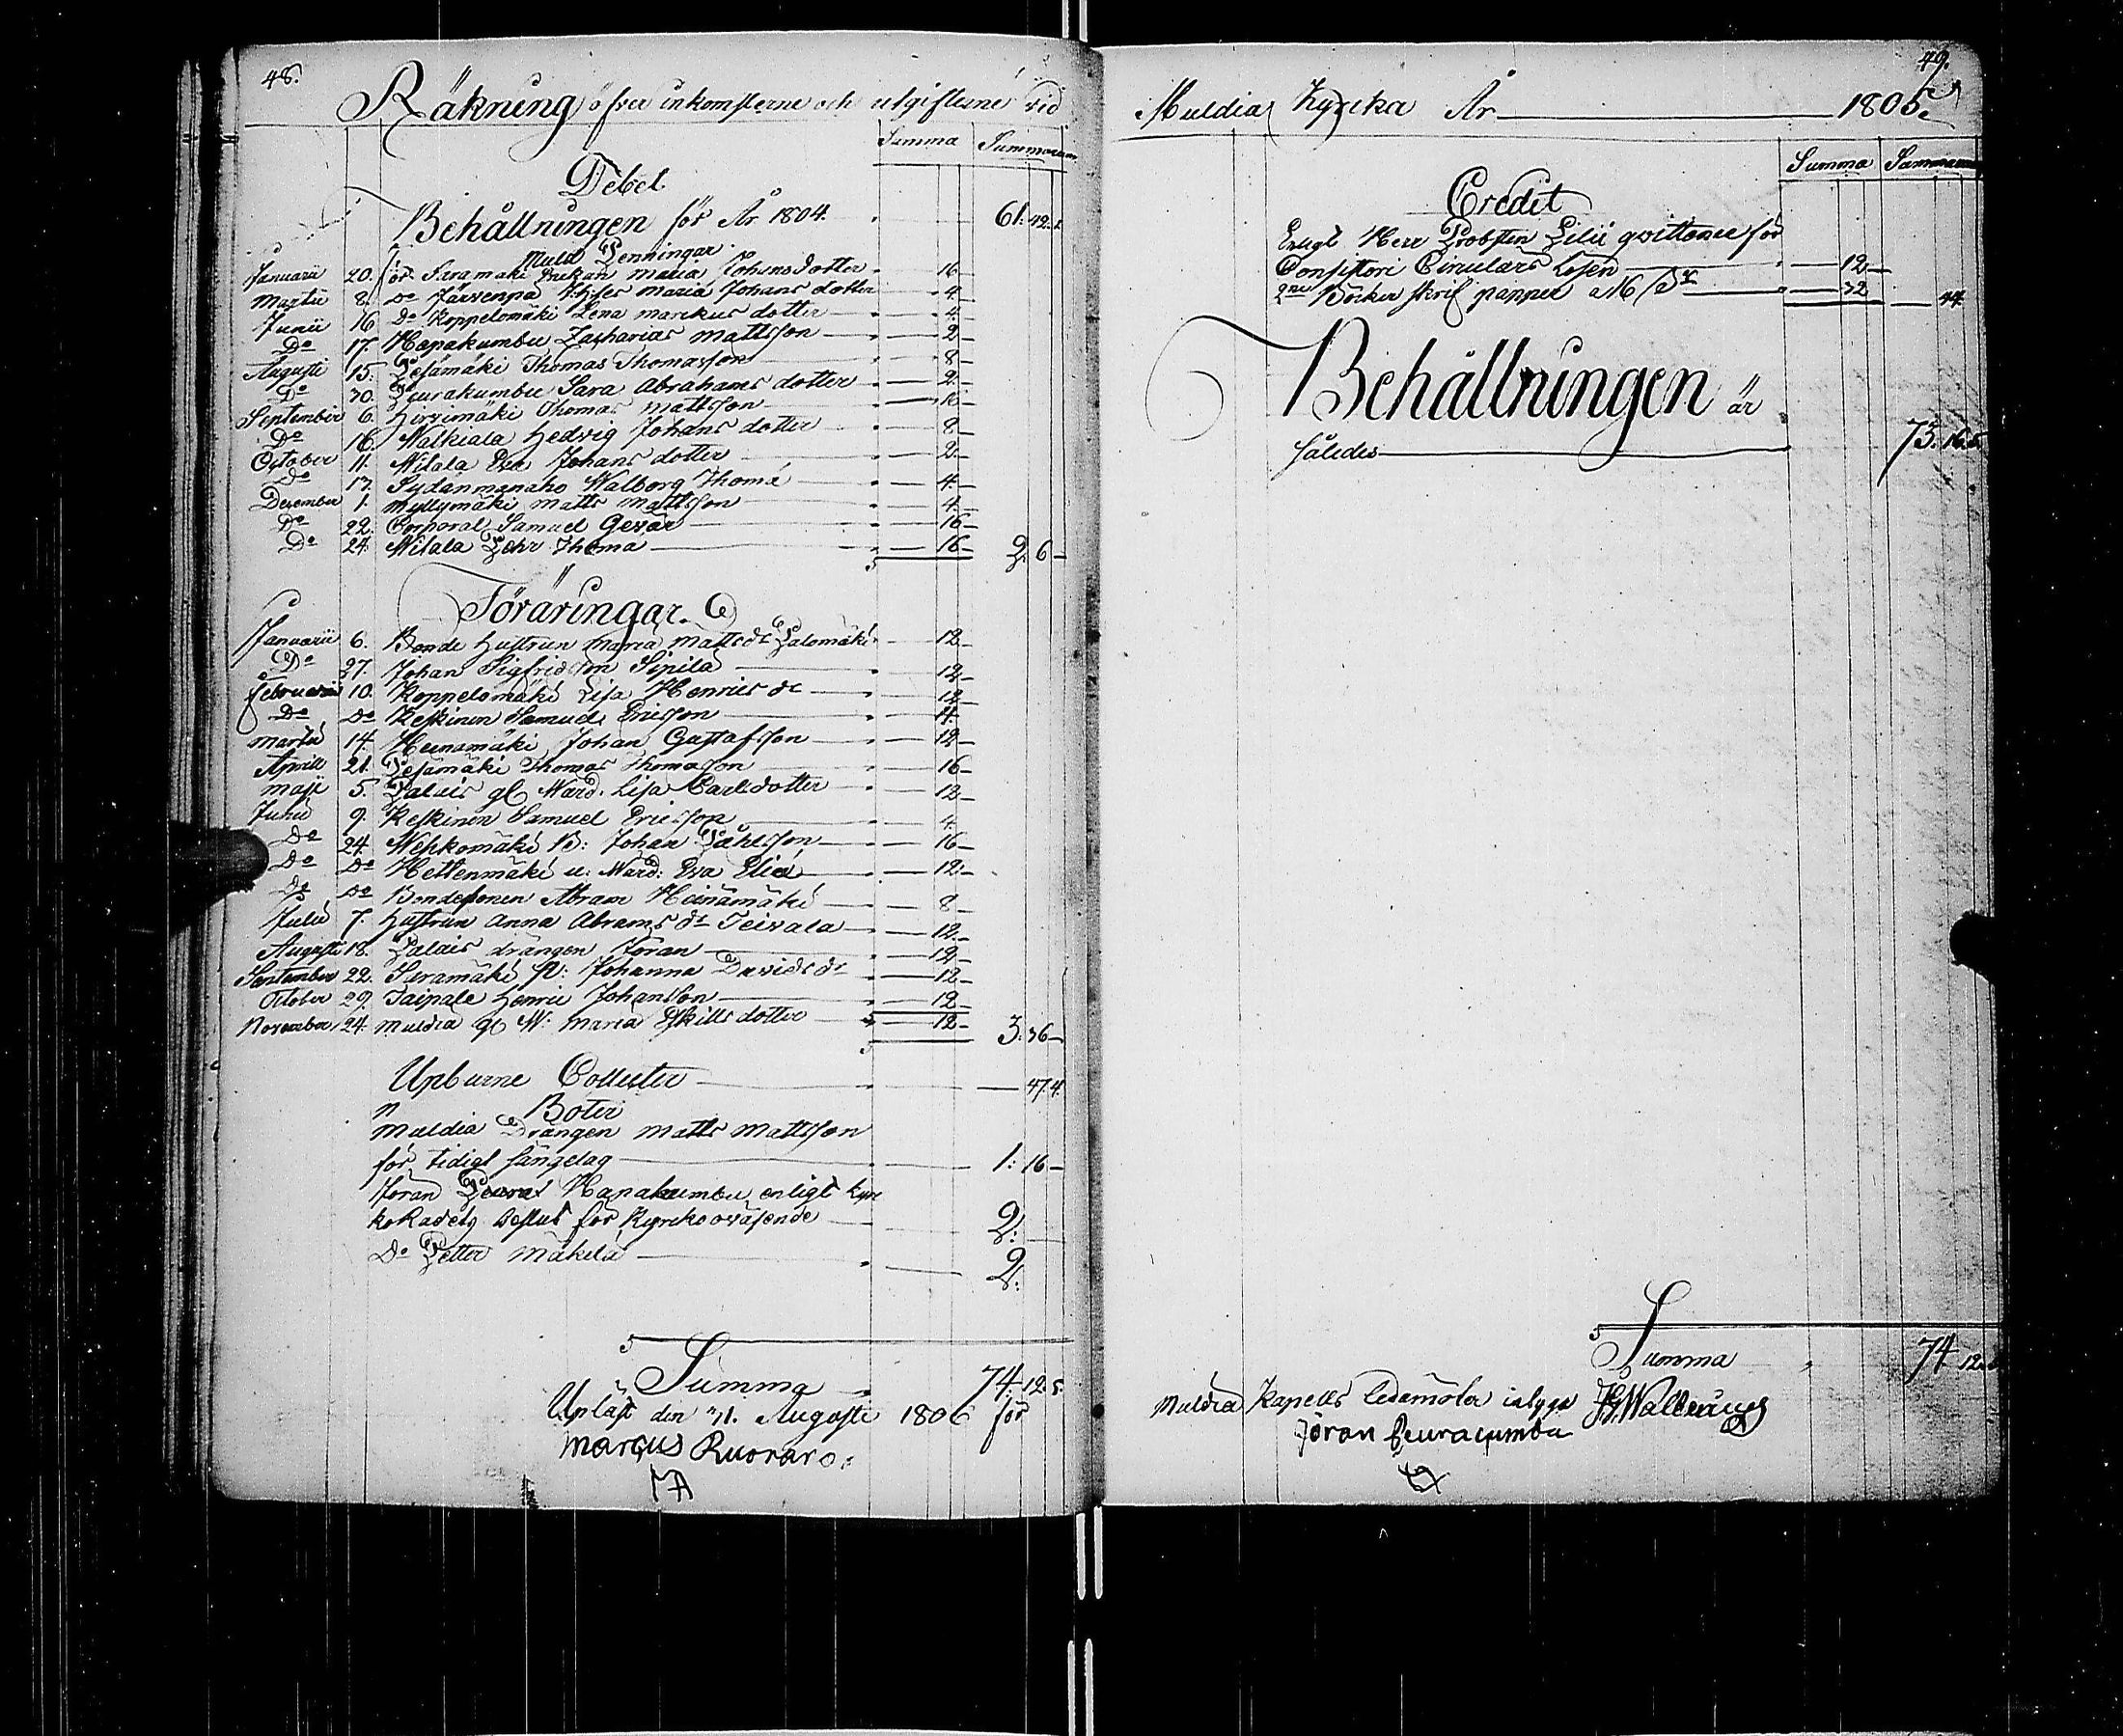 48.
Räkning öfver inkomsterne och utgifterne vid
Summa Summarum
Debet
Behållningen för År 1804. 61: 42. 1.
Mull Penningar
Januarii 20. för Saramäki Maria Johans dotter 16
Martii 8. Do Järvenpä Maria Johans dotter 4
Junii 16 Do Koppelomäki Lena Marckus dotter 4
Do 17. Hapakumbu Zacharias Mattsson 2
Augusti 15. Pesämäki Thomas Thomasson 8
Do 30. Peurakumbu Sara Abrahams dotter 2
September 6. Hirsimäki Thomas Mattsson 16
Do 16. Walkiala Hedvig Johans dotter 8
October 11. Nitala Eva Johans dotter 2
Do 13. Sydänmanaho Walborg Thomæ 4
December 1. Myllymäki Matts Mattsson 4
Do 22. Corporal Samuel Gevär 16
Do 24. Nitala Thoma 16 2. 6
Föräringar
Januarii 6. Bonde Hustrun Maria Mattsdr Palomäki 12
Do 27. Johan Sigfridsson Sipilä 12
Februarii 10. Koppelomäki Lisa Henrics dr 12
Do Do Keskinen Samuel Ericsson 4
Martii 14. Heinämäki Johan Gustafsson 12
Aprill 21. Pesämäki Thomas Thomasson 16
Maji 5. Palais gl. Wärd. Lisa Carlsdotter 12
Junii 9. Keskinen Samuel Ericsson 4
Do 24. Wehkomäki B: Johan Påhlsson 16
Do Do Hettenmäki u: Wärd: Eva Eliæ 12
Do Do Bondesonen Abram Heinämäki 8
Julii 7. Hustrun Anna Abrams dr Teivala 12
Augusti 18. Palais drängen Jöran 12
September 22. Saramäki P: Johanna Davids dr 12
October 29. Taipale Henric Johansson 12
November 24. Muldia gl W: Maria Eskills dotter 12 3: 36
Upburne Collecter 47. 4.
Böter
Muldia Drängen Matts Mattsson
för tidigt sängelag 1: 16
Jöran Peura Hapakumbu enligt kyr
koRådets Beslut för Kyrkoovásende 2:
Do Petter Mäkelä 2:
Summa 74: 12: 5.
Upläst den 31. Augusti 1806 för
Marcus Ruorar
49.
Muldia Kyrcka År 1805.
Summa Summarum
Credit
Enligt Herr Probsten Lilii qvittence för
Consistorii Circulärs lösen 12
2ne Böcker skrif papper a 16 s 32 44
Behållningen är
således 73. 16. 5.
Summa 74 12.
Muldia Kapells Ledamöter intyga
Jöran Peuracumbu